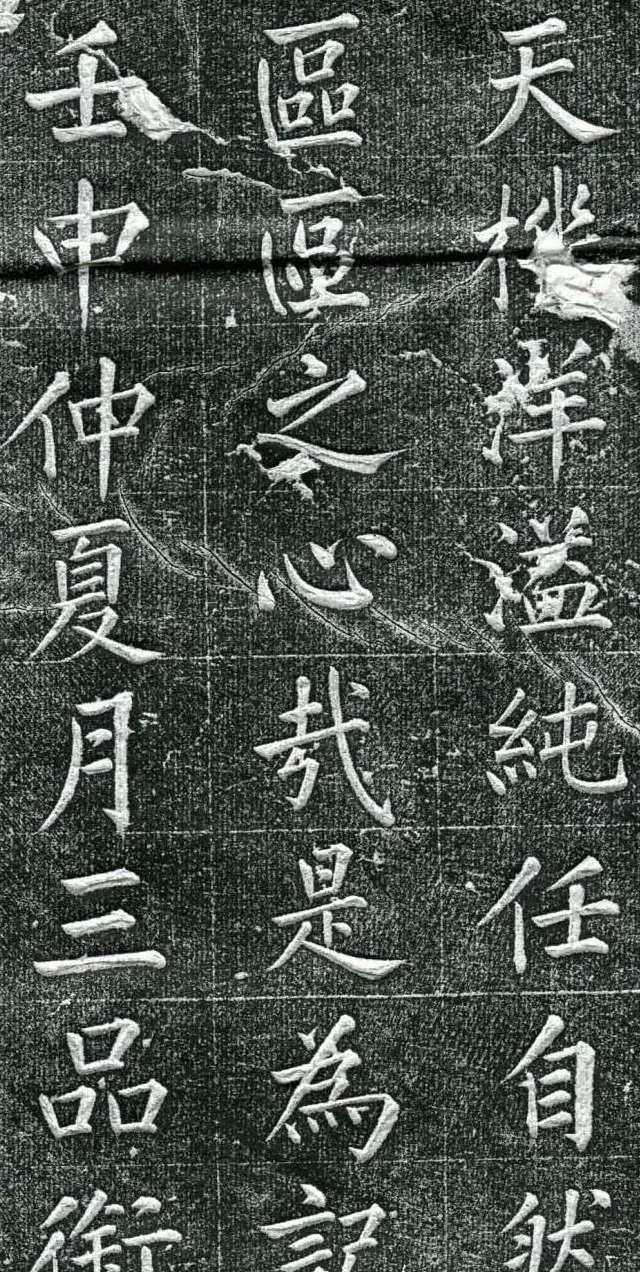 天機洋溢純任自然
區區之心哉是為記
壬申仲夏月三品銜